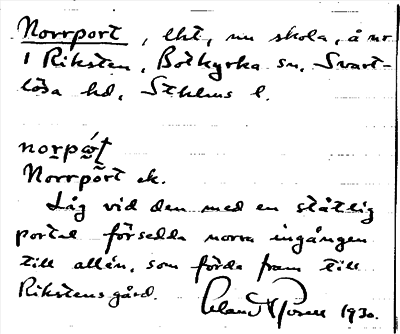 Norrport, lht, nu skola, å nr
1 Riksten, Botkyrka sn, Svart-
lösa hd, Sthlms l.
Norrpört ek.
Låg vid den med en ståtlig
portal försedda norra ingången
till allén, som förde fram till
Rikstens gård. 1930.